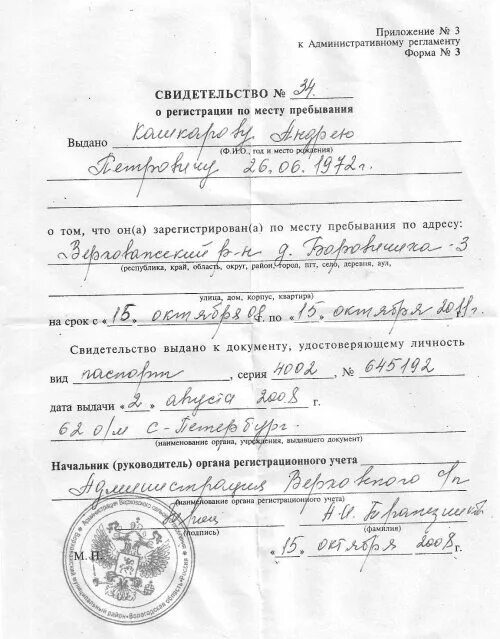 Приложение № 3
к Административному регламенту
Форма № 3
СВИДЕТЕЛЬСТВО № 34
о регистрации по месту пребывания
Выдано Кошкарову Андрею
(Ф.И.О., год и место рождения)
Петровичу 26.06.1972г.
о том, что он(а) зарегистрирован(а) по месту пребывания по адресу:
Верховажский р-н д. -3
(республика, край, область, округ, район, город, пгт, село, деревня, аул,
улица, дом, корпус, квартира)
на срок с « 15 » октября 08 по « 15 » октября г.
Свидетельство выдано к документу, удостоверяющему личность
вид паспорт, серия 4002, № 645192
дата выдачи « 2 » августа 2008 г.
62 о/м С-Петербург
(наименование органа, учреждения, выдавшего документ)
Начальник (руководитель) органа регистрационного учета
Администрация Верховского с/п
(наименование органа регистрационного учета)
А.И.
(подпись) (фамилия)
М. П. « 15 » октября 2008 г.